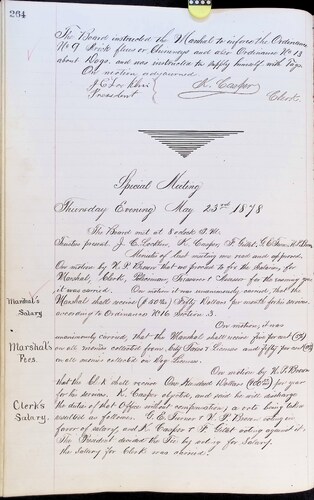 264
The Board instructed the Marshal to inforce the Ordinance
No 9 Brick flues or Chimneys and also Ordinance No 14
about Dogs, and was instructed to supply himself with Tags
On motion adjourned
President
K. Casper
Clerk.
Special Meeting
Thursday Evening May 23rd 1878
The Board met at 8 oclock P.M.
Trustees present. J. C. Loehlin, K. Casper, F. Gilst,
Minutes of last meeting were read and approved.
On motion by H. P. Brown that we proceed to fix the Salaries for
Marshal, Clerk, Policeman, Treasurer & Assessor for the ensuing year
it was carried. On motion it was unanimously carried, that the
Marshal shall receive Fifty Dollars per month for his services
according to Ordinance No 16 Section 3.
Marshal's
Salary
On motion, it was
unanimously carried, that the Marshall shall receive five per cent (5%)
on all monies collected from City Taxes & Licenses and fifty per cent
on all monies collected on Dog License.
Marshal's
Fees.
On motion by H. P. Brown
that the Clerk shall receive One Hundred Dollars per year
for his services. K. Casper objected, and said he will discharge
the duties of that Office without compensation, a vote being taken
resulted as follows. H. P. Brown voting in
favor of salary, and K. Casper & F. Gilst voting against it.
The President decided the Tie by voting for Salary.
the Salary for Clerk was allowed.
Clerk's
Salary.